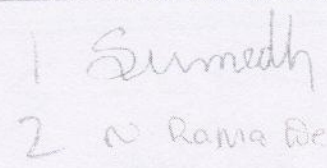 1 Sumedh
2 N Rama De